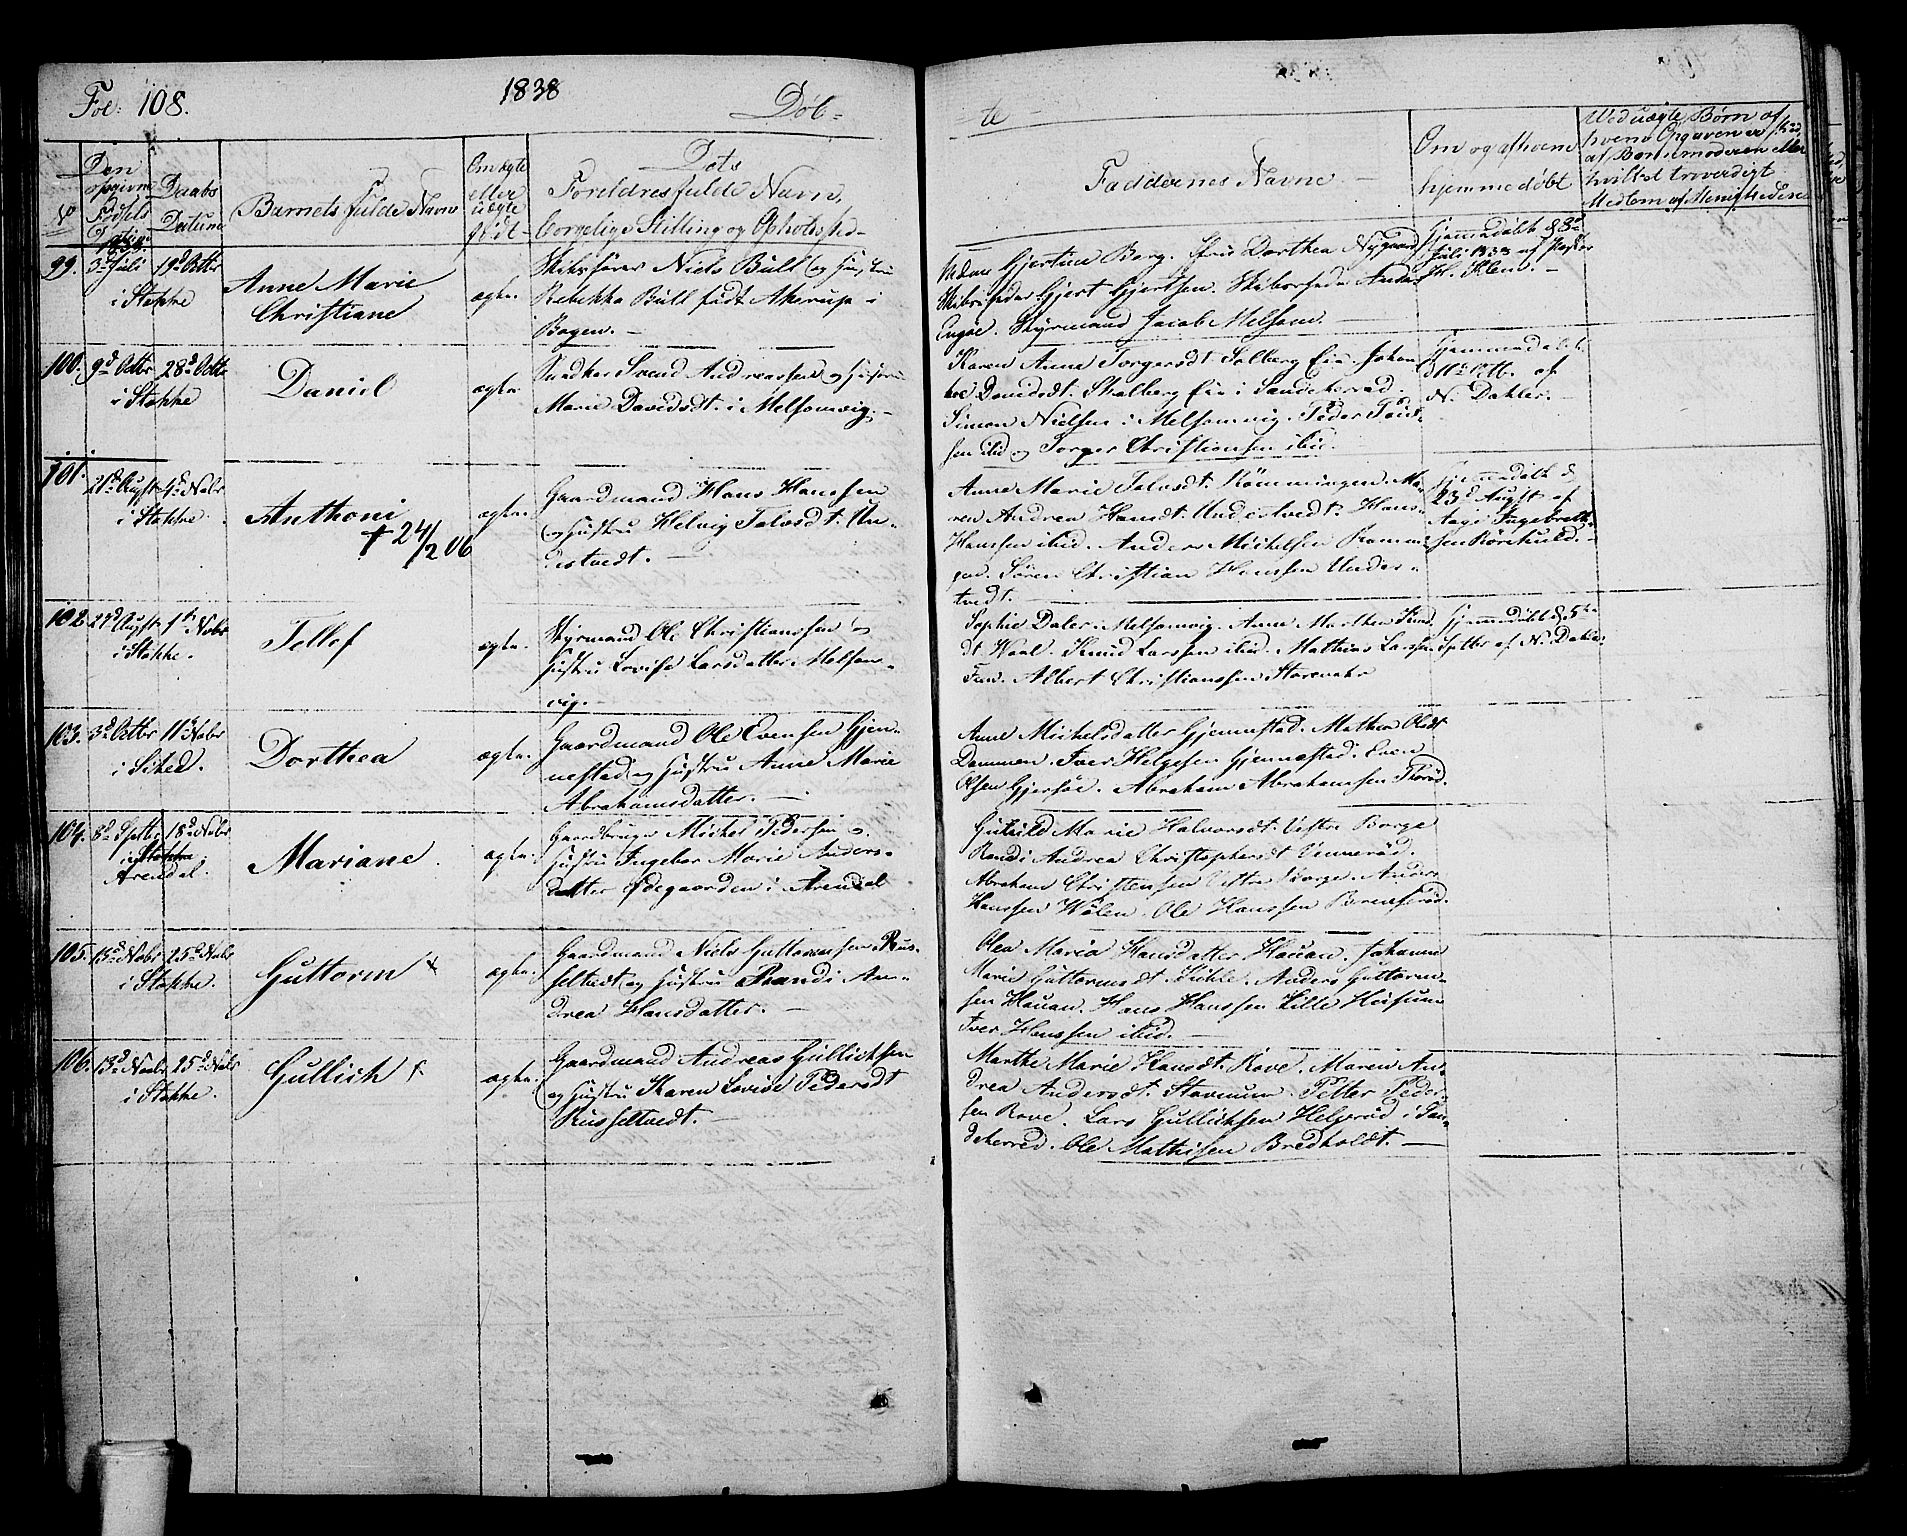 Fol: 108.
1838
Døb-
te
Den opgivne Fødsels Datum
Daabs Datum
Barnets fulde Navn
Om ægte eller uægte født
Dets Forældres fulde Navn, borgelige Stilling og Opholdssted
Faddernes Navne
Om og af hvem hjemmedøbt
Ved uægte Børn af
hvem Opgaven er skeed,
af Barnemoderen eller
hvilket troværdigt
Medlem af Menigheden
1838.
99. 3d Juli 19d Octbr
i Stokke
Anne Marie
Christiane
ægte.
Skibsfører Niels Bull og Hustru
Rebekka Bull født Akerup i
Bogen.
Madame Gjertine Berg. Dorthea Nygaard
Skibsreder Gjert Gjertsen. Skibsreder Anders
Engøe. Styrmand Jacob Melsom.
Hjemmedøbt d 3d
Juli 1838 af Pastor
H. Klem.
100. 9d Octbr 28d Octbr
i Stokke
Daniel
ægte.
Snedker Svend Andreassen og Hustru
Marie Davidsdt. i Melsomvig.
Karen Anne Torgersdt Solberg Eie. Johan-
ne Davidsdt. Skalberg Eie i Sandeherred.
Simon Nielsen i Melsomvig. Peder
sen ibid og Torger Christiansen ibid.
Hjemmedøbt
d 11d Octb. af
N. Dahler.
101. 21d Augst 4d Novbr
i Stokke.
Anthoni
† 24/2 06
ægte.
Gaardmand Hans Hanssen
og Hustru Helvig Talvsdt. Un-
destvedt.
Anne Marie Talvsdt. Rømmingen. Ma-
ren Andrea Hansdt. Undestvedt. Hans
Hanssen ibid. Anders Michelsen
Søren Christian Hanssen Under-
tvedt.
Hjemmedøbt d
23d Augst af
Aage Ingebreth-
sen Rørehuld.
102. 27d Augst 1ste Novbr
i Stokke.
Tellef
ægte.
Styrmand Ole Christianssen og
Hustru Lovise Larsdatter Melsom-
vig.
Sophie Daler Melsomvig. Anne Marthea
dt Waal. Knud Larssen ibid. Mathias Larsen
Fein. Albert Christianssen Storevahr
Hjemmedøbt d 5te
Sptbr af N. Dahler
103. 3d Octbr 11d Novbr
i Sihed.
Dorthea
ægte.
Gaardmand Ole Evensen Gjen-
nestad og Hustru Anne Marie
Abrahamsdatter.
Anne Michelsdatter Gjennestad. Mathea Olsdt
Dammen. Iver Helgesen Gjennestad. Even
Olsen Gjersøe. Abraham Abrahamssen Thorød.
104. 8d Sptbr 18d Novbr
i Stokke
Arendal.
Mariane
ægte.
Gaardbruger Michel Pedersen og
Hustru Ingebor Marie Anders-
datter Ødegaarden i Arendal
Gunild Marie Halvorsdt. Vestre Borge
Randi Andrea Christophersdt Vennerød.
Abraham Christensen Vestre Borge. Anders
Hanssen Wølen. Ole Hanssen
105. 15d Novbr 25d Novbr
i Stokke.
Guttorm
ægte.
Gaardmand Niels Guttormsen Rus-
seltvedt og Hustru Randi An-
drea Hansdatter.
Olea Maria Hansdatter Hauan. Johanne
Marie Guttormsdt. Anders Guttorm-
sen Hauan. Hans Hanssen Lille
Iver Hanssen ibid.
106. 13d Novbr 25d Novbr
i Stokke.
Gullich
ægte.
Gaardmand Andreas Gullichsen
og Hustru Karen Lovise Pedersdt
Russeltvedt.
Marthe Marie Hansdt. Rave. Maren An-
drea Andersdt. Stavnum. Petter Peder-
sen Rove. Lars Gullichsen Helgerød i San-
deherred. Ole Mathisen Bredholdt.